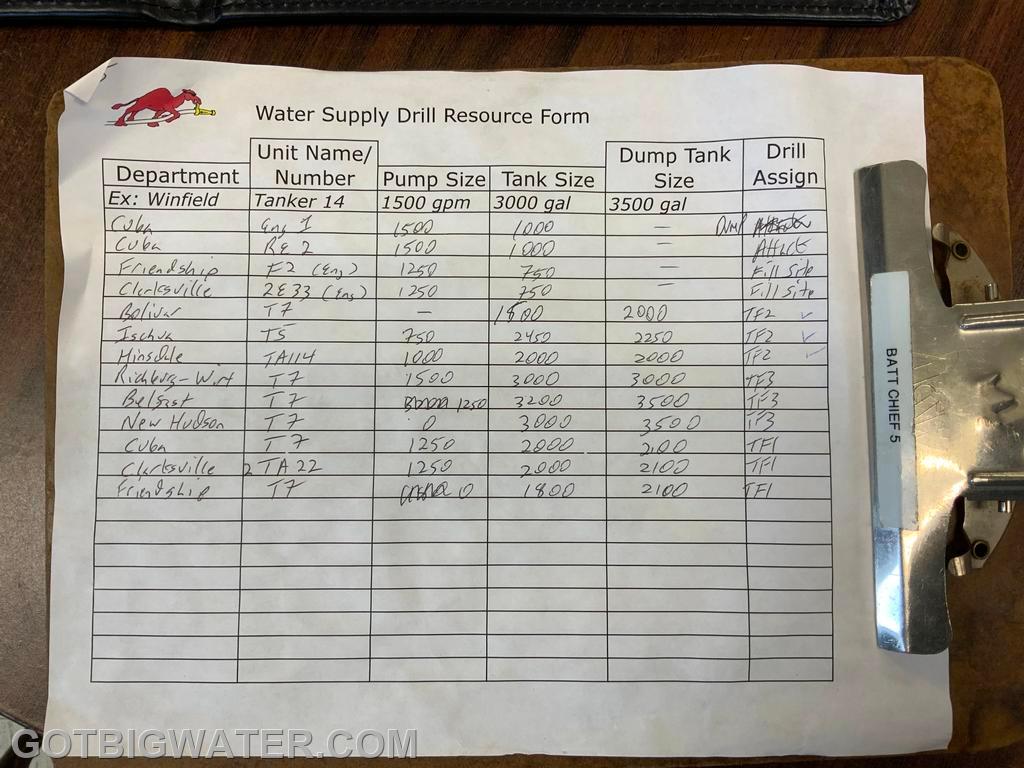 Water Supply Drill Resource Form
Department Unit Name/ Number Pump Size Tank Size Dump Tank Size Drill Assign
Ex: Winfield Tanker 14 1500 gpm 3000 gal 3500 gal
Cuba Eng 1 1500 1000 — Dump
Cuba RE 2 1500 1000 — Attack
Friendship E2 (Eng) 1250 750 — Fill Site
Clarksville 2E33 (Eng) 1250 750 — Fill Site
Bolivar T7 — 1800 2000 TF2 ✓
Ischua T5 750 2450 2250 TF2 ✓
Hinsdale TA114 1000 2000 2000 TF2 ✓
Richburg-Wirt T7 1500 3000 3000 TF3
Belfast T7 1250 3200 3500 TF3
New Hudson T7 0 3000 3500 TF3
Cuba T7 1250 2000 2100 TF1
Clarksville 2TA22 1250 2000 2100 TF1
Friendship T7 0 1800 2100 TF1
BATT CHIEF 5
GOTBIGWATER.COM